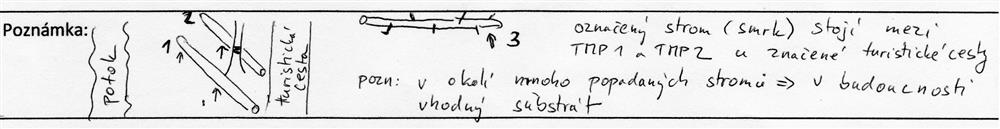 Poznámka:
potok
1
2
turistická
cesta
3
označený strom (smrk) stojí mezi
TMP1 a TMP2 u značené turistické cesty
pozn: v okolí mnoho popadaných stromů => v budoucnosti
vhodný substrát